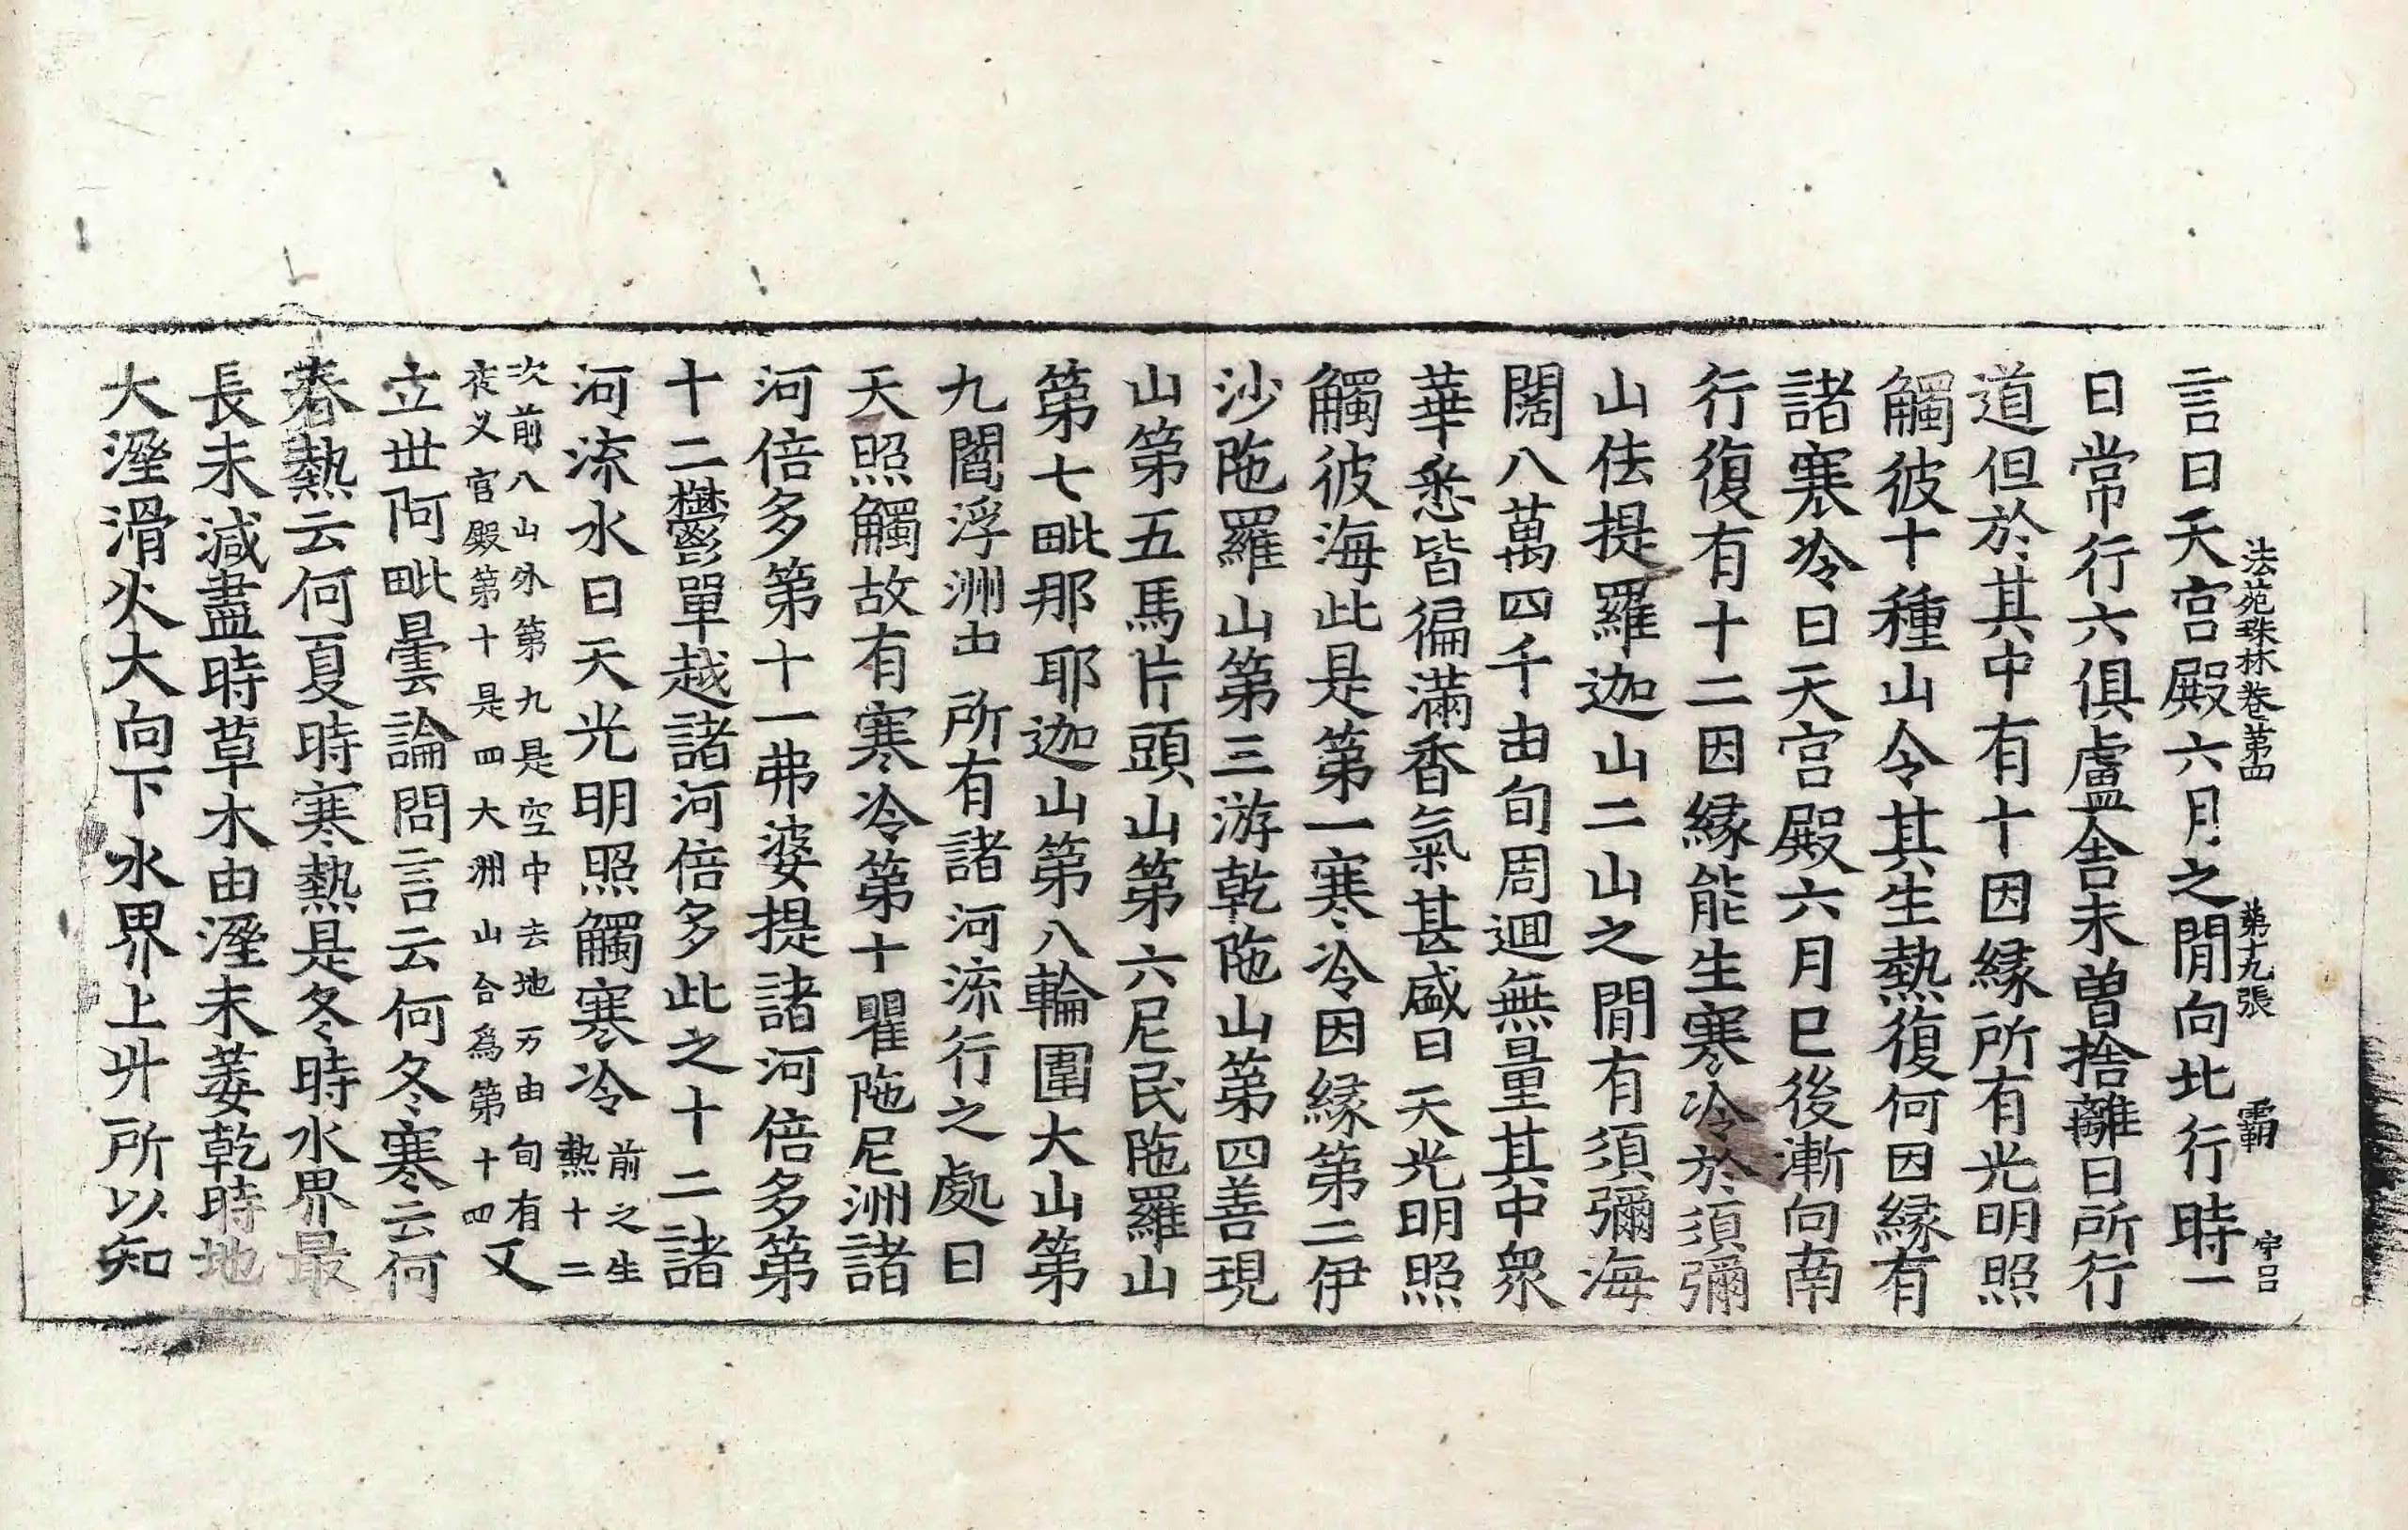 法苑珠林卷第四　第十九張　霸　守吕
言日天宫殿六月之閒向北行時一
日常行六俱盧舍未曽捨離日所行
道但於其中有十因縁所有光明照
觸彼十種山令其生熱復何因縁有
諸寒冷日天宫殿六月已後漸向南
行復有十二因縁能生寒冷於須彌
山佉提羅迦山二山之閒有須彌海
闊八萬四千由旬周迴無量其中衆
華悉皆徧滿香氣甚盛日天光明照
觸彼海此是第一寒冷因縁第二伊
沙陁羅山第三游乾陁山第四善現
山第五馬片頭山第六尼民陁羅山
第七毗那耶迦山第八輪圍大山第
九閻浮洲中所有諸河流行之處日
天照觸故有寒冷第十瞿陁尼洲諸
河倍多第十一弗婆提諸河倍多第
十二鬱單越諸河倍多此之十二諸
河流水日天光明照觸寒冷前之生熱十二
次前八山外第九是空中去地万由旬有夜叉宫殿第十是四大洲山合爲第十四又
立世阿毗曇論問言云何冬寒云何
春熱云何夏時寒熱是冬時水界最
長未減盡時草木由溼未萎乾時地
大溼滑火大向下水界上升所以知